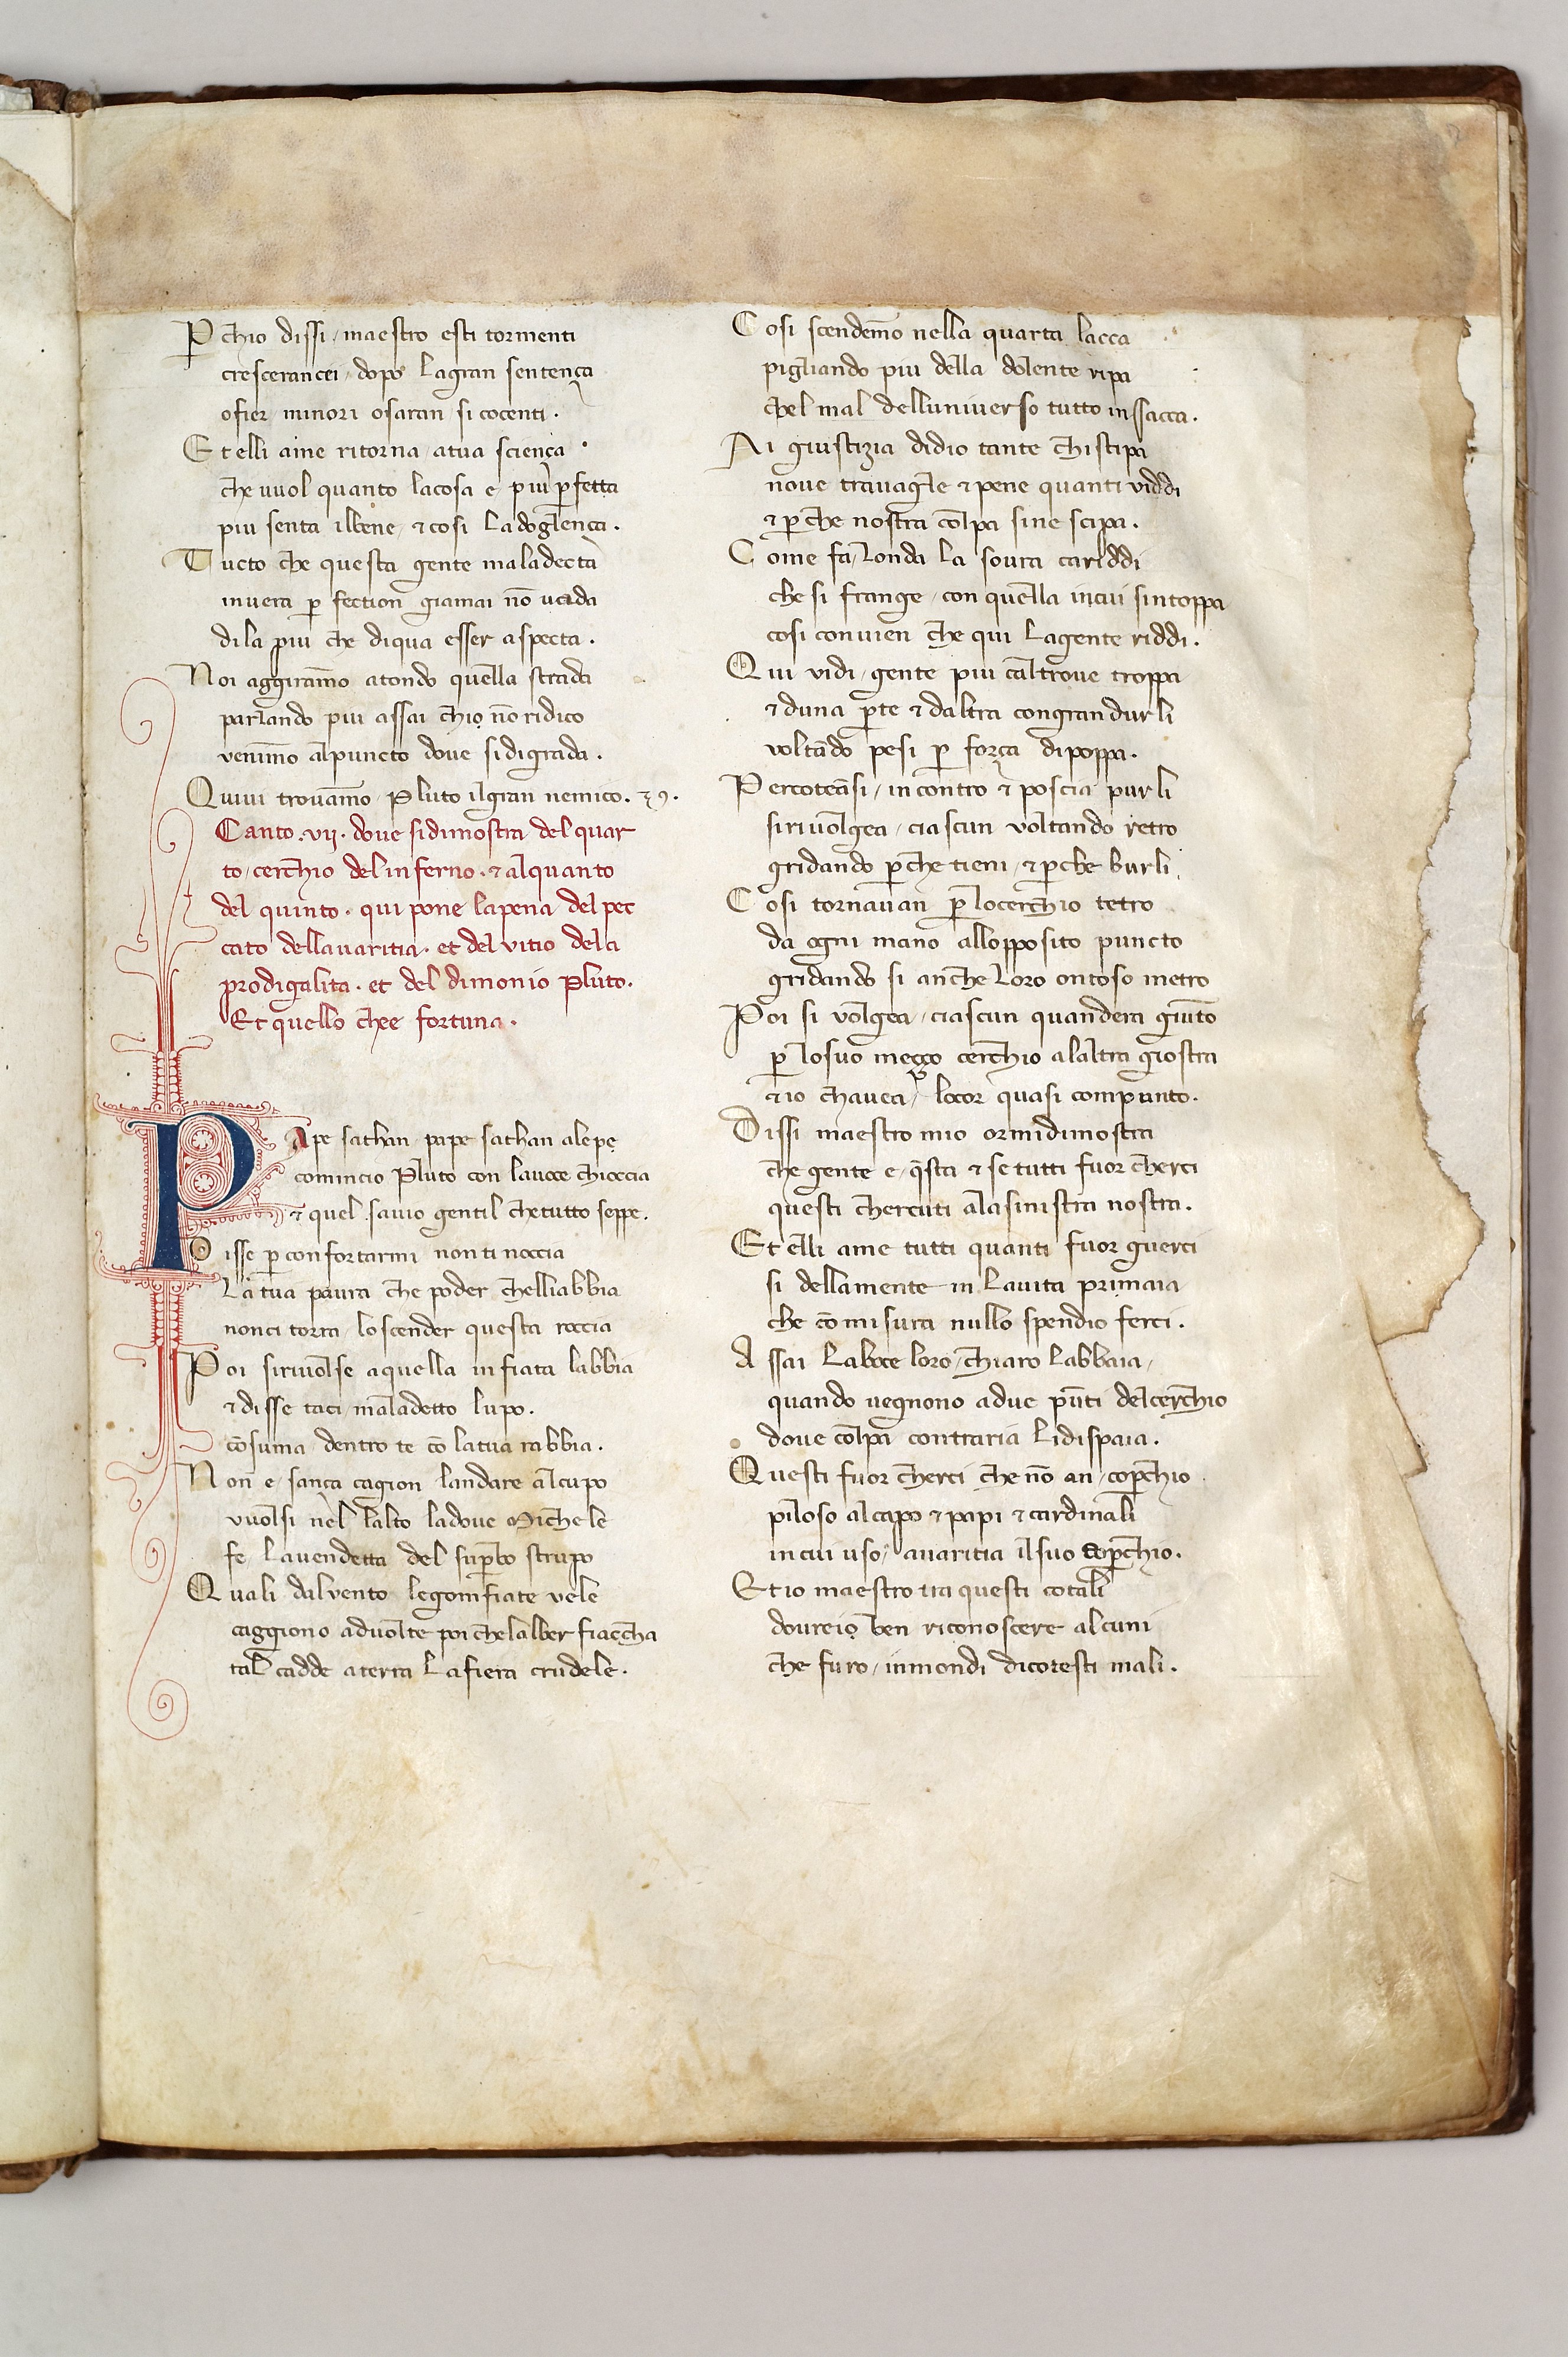 P chio dissi / maestro esti tormenti
crescerancei / dopo lagran sentença
ofier minori osaran si cocenti .
Et elli ame ritorna / atua sciença
che vuol quanto lacosa e piu pfetta
piu senta ilbene / & cosi ladoglença .
Tucto che questa gente maladecta
invera p fection giamai nō vada
dila piu che diqua esser aspecta .
Noi aggiramō atondo quella strada
parlando piu assai chio nō ridico
venimō alpuncto dove sidigrada .
Quivi trovamō / Pluto ilgran nemico . & 9 .
Canto . vij . dove sidimostra del quar
to / cerchio del inferno . & alquanto
del quinto . qui pone lapena del pec
cato dellavaritia . et del vitio dela
prodigalita . et del dimonio Pluto .
Et quello chee fortuna .
PApe sathan pape sathan alepe
comincio Pluto con lavoce chioccia
& quel savio gentil chetutto seppe .
Disse p confortarmi non ti noccia
La tua paura che poder chelliabbia
nonci torra / loscender questa roccia
Poi sirivolse aquella infiata labbia
& disse taci / maladetto lupo .
cōsuma dentro te cō latua rabbia .
Non e / sança cagion landare alcupo
vuolsi nel lalto ladove Michele
fe lavendetta del supbo strupo
Quali dalvento legomfiate vele
caggiono advolte poi chelalber fiaccha
tal cadde aterra lafiera crudele .
Cosi scendemō nella quarta lacca
pigliando piu della dolente ripa
chel mal delluniverso tutto inssacca .
Ai giustizia didio tante chistipa
nove travagle & pene quanti viddi
& pche nostra colpa sine scipa .
Come fa / londa la sovra cariddi
che si frange / con quella incui sintoppa
cosi convien che qui lagente riddi .
Qui vidi / gente piu caltrove troppa
& duna pte & daltra congrandurli
voltādo pesi p força dipoppa .
Percoteāsi / incontro & poscia purli
sirivolgea / ciascun voltando retro
gridando pche tieni / & pche burli .
Cosi tornavan p locerchio tetro
da ogni mano allopposito puncto
gridando si anche loro ontoso metro
Poi si volgea / ciascun quandera giūto
p losuo meçço cerchio alaltra giostra
& io chavea / locor quasi compunto .
Dissi maestro mio ormidimostra
che gente e / qsta & se tutti fuor cherci
questi chercuti alasinistra nostra .
Et elli ame tutti quanti fuor guerci
si dellamente in lavita primaia
che cō misura nullo spendio ferci .
Assai laboce loro / chiaro labbaia /
quando vegnono adue pūti delcerchio
dove colpa contraria lidispaia .
Questi fuor cherci che nō an / copchio
piloso alcapo & papi & cardinali
incui uso / avaritia ilsuo sopchio .
Et io maestro tra questi cotali
dovreio ben riconoscere alcuni
che furo / inmondi dicotesti mali .